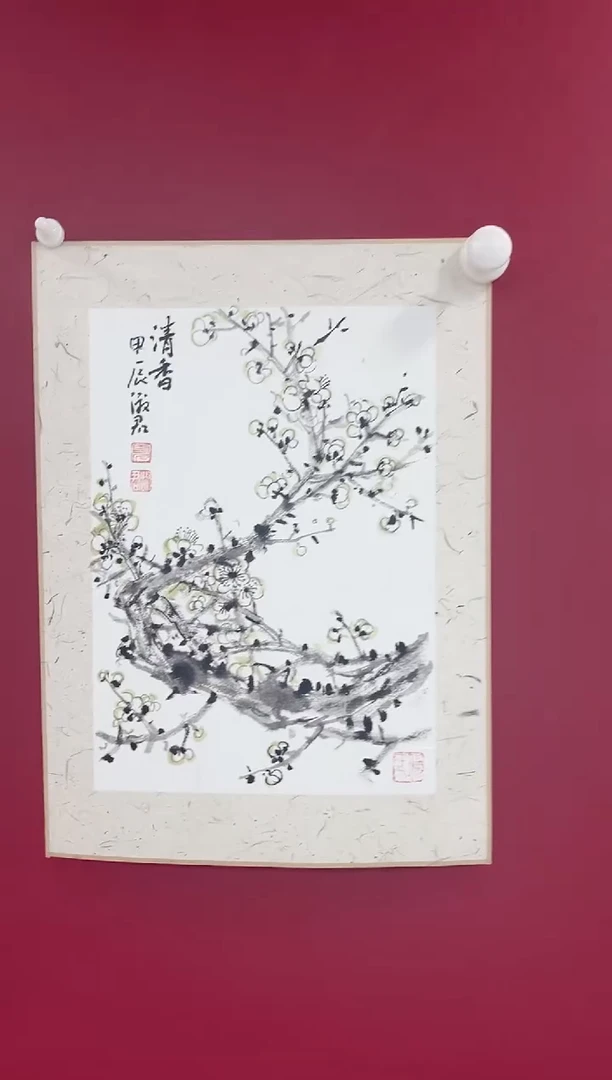 清香
甲辰淑君